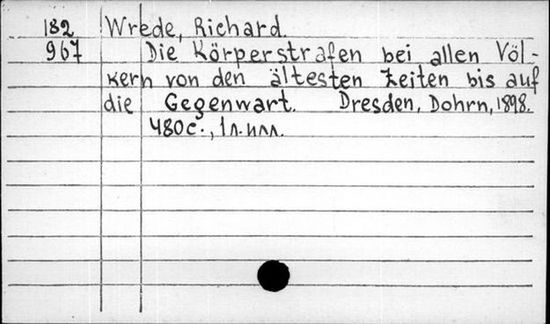 182 Wrede, Richard.
967 Die Körperstrafen bei allen Völ-
kern von den ältesten Zeiten bis auf
die Gegenwart. Dresden, Dohrn, 1898.
480с., 1л. илл.